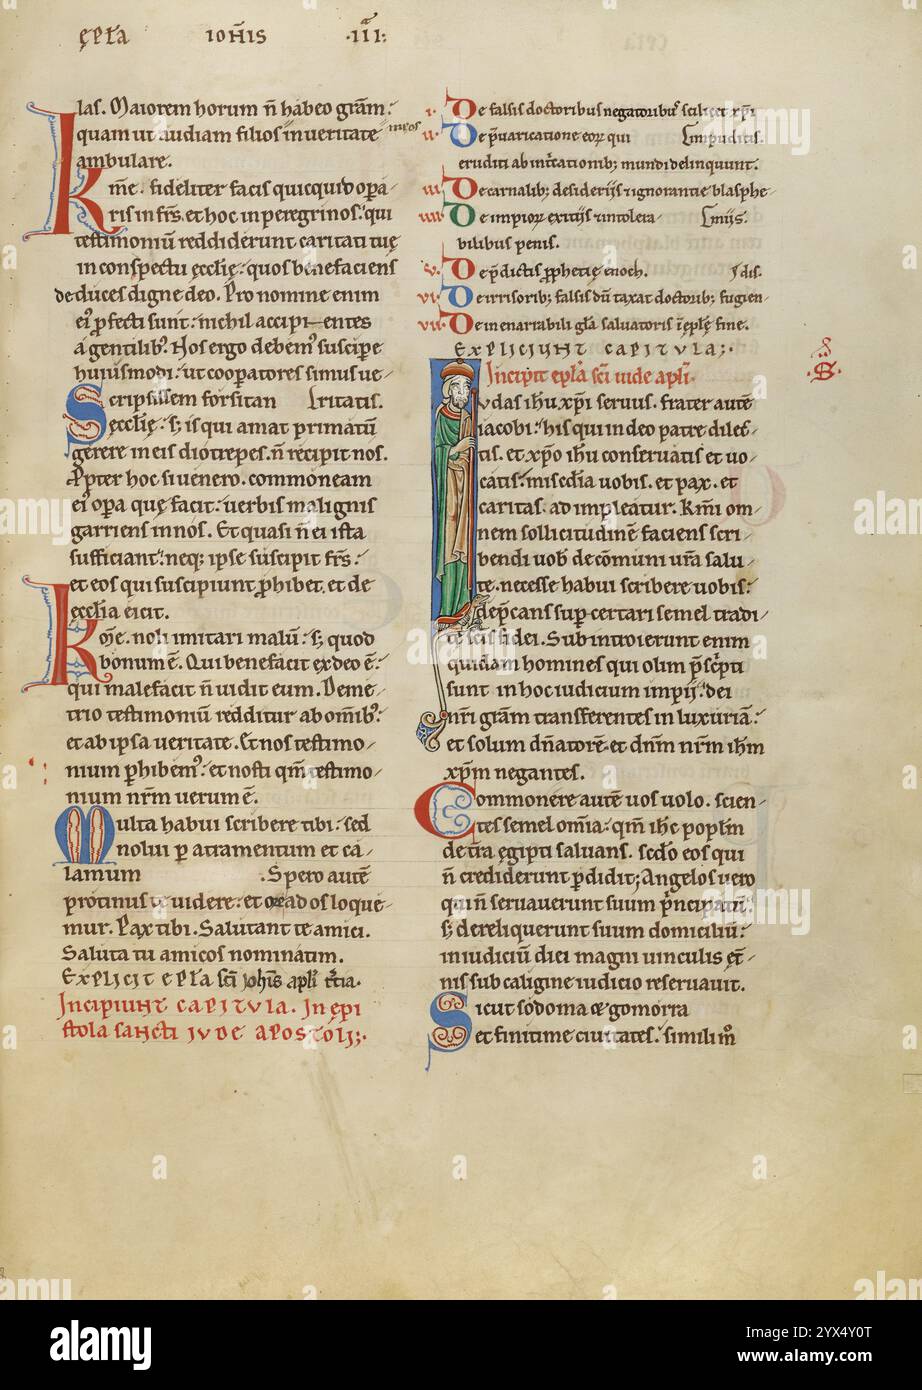 ęp̄ła IOH̄IS ·III^a:
las. Maiorem horum ñ habeo grām:
quam ut audiam filios in ueritate meos
ambulare.
Kr̄me. fideliter facis quicquid opa-
ris in frs. et hoc in peregrinos. qui
testimoniū reddiderunt caritati tuę
in conspectu ęcclię. quos benefaciens
deduces digne deo. Pro nomine enim
ei' pfecti sunt. nichil accipi–entes
a gentilib'. Nos ergo debem' suscipe
huiusmodi. ut cooperatores simus ue-
Scripsissem forsitan ritatis.
ęcclię. s; is qui amat primatū
gerere in eis diotrepes. ñ recipit nos.
Ppter hoc si uenero. commoneam
ei' opa quę facit. uerbis malignis
garriens in nos. Et quasi ñ ei ista
sufficiant. neq; ipse suscipit frs.
et eos qui suscipiunt phibet. et de
ęcclia eicit.
Kr̄me. noli imitari malū. s; quod
bonum ē. Qui benefacit ex deo ē.
qui malefacit ñ uidit eum. Deme-
trio testimoniū redditur ab om̄ib'.
et ab ipsa ueritate. Et nos testimo-
nium phibem'. et nosti qm̄ testimo-
nium nr̄m uerum ē.
Multa habui scribere tibi. sed
nolui p atramentum et ca-
lamum . Spero autē
protinus te uidere. et os ad os loque-
mur. Pax tibi. Salutant te amici.
Saluta tu amicos nominatim.
Explicit epła scī ioh̄is apłi t̄cia.
Incipiunt capitula. In epi
stola sancti iude apostoli;.
i. De falsis doctoribus negatorib' scilicet xp̄i
ii. De p̄uaricatione eoꝝ qui impuditis.
eruditi ab int̄cationib; mundi delinquunt.
iii. De carnalib; desiderijs ⁊ ignorantie blasphe-
iiii. De impioꝝ exitijs ⁊ intolera- mijs.
bilibus penis.
v. De p̄dictis pphetię enoch. dis.
vi. De irrisorib; falsis dū taxat doctorib; fugien-
vii. De inenarrabili gła saluatoris ī epłę fine.
Expliciunt capitula;.
Incipit epła scī iude apłi.
Iudas ih̄u xp̄i seruus. frater autē
iacobi. his qui in deo patre dilec-
tis. et xp̄o ih̄u conseruatis et uo-
catis. misc̄dia uobis. et pax. et
caritas. adimpleatur. Kr̄mi om-
nem sollicitudinē faciens scri-
bendi uob' de cōmuni ur̄a salu-
te. necesse habui scribere uobis.
dep̄cans sup certari semel tradi-
tę scīs fidei. Subintroierunt enim
quidam homines qui olim p̄sc̄pti
sunt in hoc iudicium impij. dei
nr̄i grām transferentes in luxuriā.
et solum dn̄atorē. et dn̄m nr̄m ih̄m
xp̄m negantes.
Commonere autē uos uolo. scien-
tes semel om̄ia. qm̄ ih̄c poplm
de t̄ra ęgipti saluans. scdo eos qui
ñ crediderunt pdidit; Angelos uero
qui ñ seruauerunt suum p̄ncipatū.
s; dereliquerunt suum domiciliū.
in iudiciū diei magni uinculis et̄-
nis sub caligine iudicio reseruauit.
Sicut sodoma & gomorra
et finitime ciuitates. simili m̊
S
alamy
2XX4Y0T
www.alamy.com